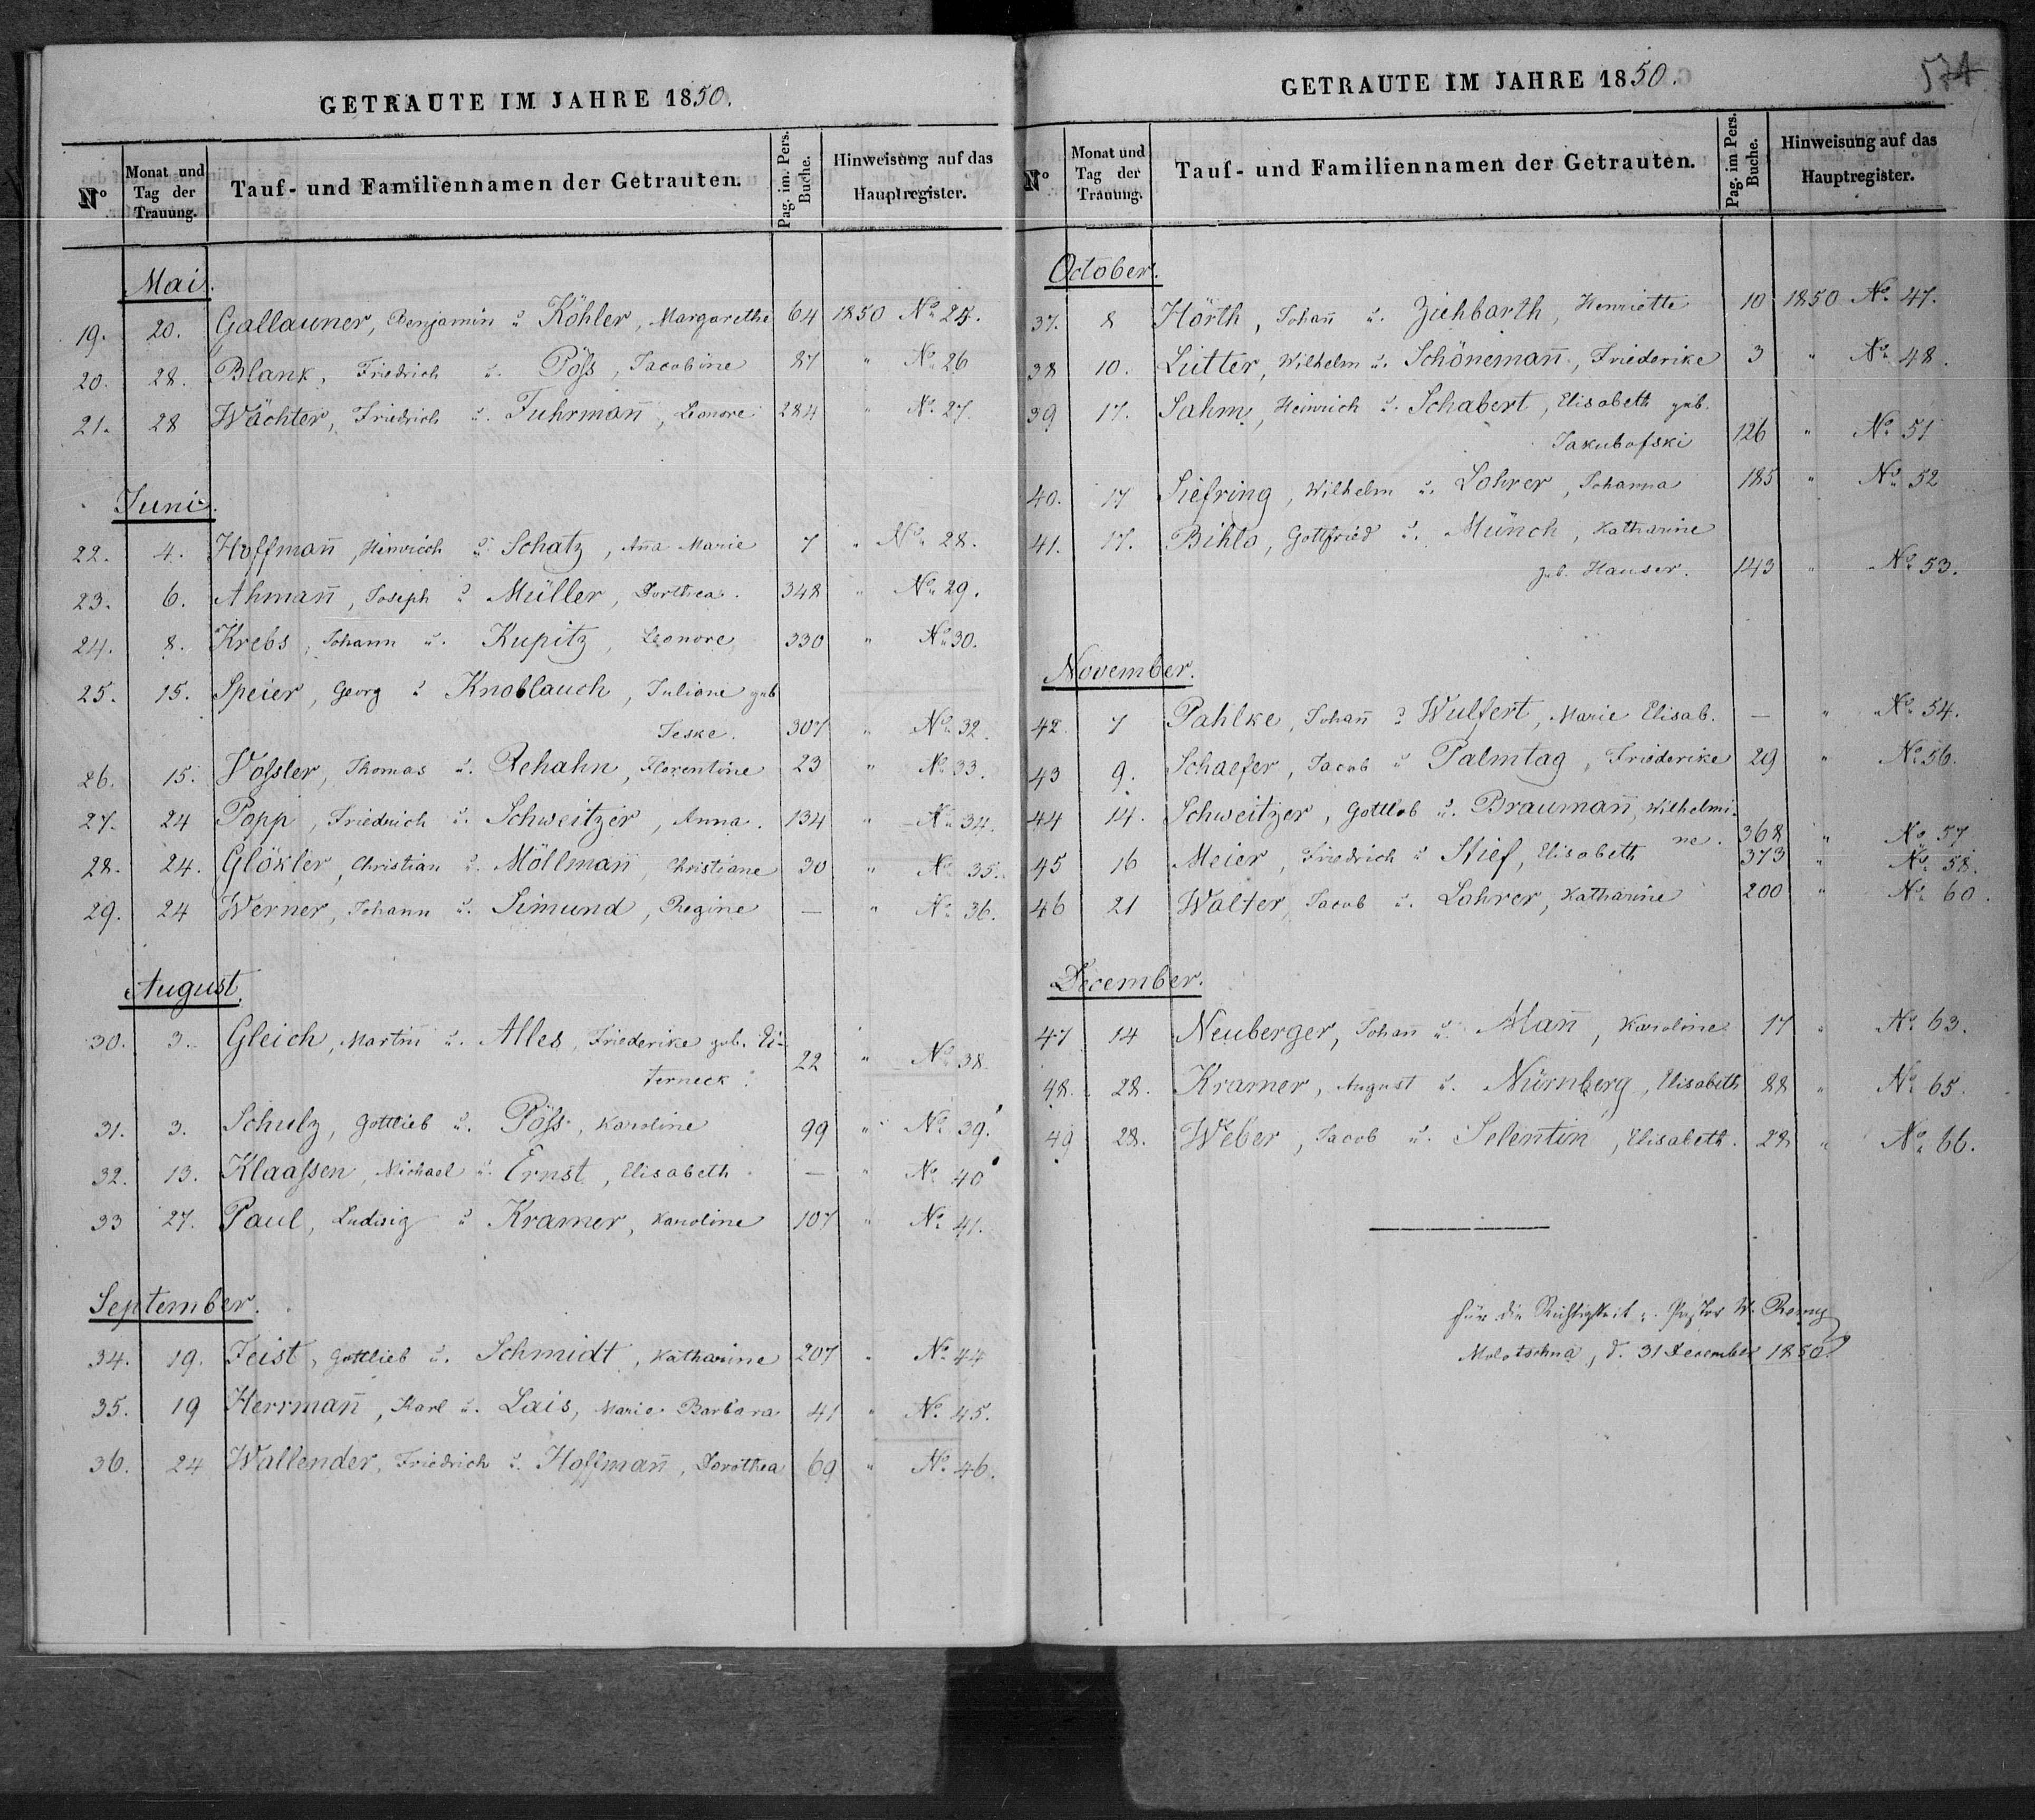 GETRAUTE IM JAHRE 1850.
No Monat und Tag der Trauung. Tauf- und Familiennamen der Getrauten. Pag. im. Pers. Buche. Hinweisung auf das Hauptregister.
Mai.
19. 20. Gallauner, Benjamin u. Köhler, Margarethe 64 1850 No 25.
20. 28. Blank, Friedrich u. Pöss, Jacobine 87 " No 26
21. 28 Wächter, Friedrich u. Fuhrman̄, Leonore 284 " No 27.
Juni.
22. 4. Hoffman̄, Heinrich u. Schatz, An̄a Marie 7 " No 28.
23. 6. Ahman̄, Joseph u. Müller, Dorthea. 348 " No 29.
24. 8. Krebs, Johann u. Kupitz, Leonore 330 " No 30.
25. 15. Speier, Georg u. Knoblauch, Juliane geb
Jeske. 307 " No 32.
26. 15. Vossler, Thomas u. Rehahn, Florentine 23 " No 33.
27. 24 Popp, Friedrich u. Schweitzer, Anna. 134 " No 34.
28. 24. Glökler, Christian u. Möllman̄, Christiane 30 " No 35.
29. 24 Werner, Johann u. Simund, Regine — " No 36.
August.
30. 3. Gleich, Martin u. Alles, Friederike geb. Ei-
terneck. 22 " No 38.
31. 3. Schulz, Gottlieb u. Pöss, Karoline 99 " No 39.
32. 13. Klaassen, Michael u. Ernst, Elisabeth — " No 40
33 27. Paul, Ludwig u. Kramer, Karoline 107 " No 41.
September.
34. 19. Feist, Gottlieb u. Schmidt, Katharine 207 " No 44
35. 19 Herrman̄, Karl u. Lais, Marie Barbara 41 " No 45.
36. 24 Wallender, Friedrich u. Hoffman̄, Dorothea 69 " No 46.
574
GETRAUTE IM JAHRE 1850.
No Monat und Tag der Trauung. Tauf- und Familiennamen der Getrauten. Pag. im Pers. Buche. Hinweisung auf das Hauptregister.
October.
37. 8 Hörth, Johan̄ u. Ziehbarth, Henriette 10 1850 No 47.
38 10. Lütter, Wilhelm u. Schöneman̄, Friederike 3 " No 48.
39 17. Sahm, Heinrich u. Schabert, Elisabeth geb.
Jakubofski 126 " No 51
40. 17 Siefring, Wilhelm u. Lohrer, Johanna 185 " No 52
41. 17. Bihlo, Gottfried u. Münch, Katharine
geb. Hauser. 143 " No 53.
November.
42. 7 Pahlke, Johan̄ u. Wulfert, Marie Elisab. — " No 54.
43 9. Schaefer, Jacob u. Palmtag, Friederike 29 " No 56.
44 14. Schweitzer, Gottlob u. Brauman̄, Wilhelmi-
ne. 368 " No 57
45 16 Meier, Friedrich u. Stief, Elisabeth 373 " No 58.
46 21 Walter, Jacob u. Lohrer, Katharine 200 " No 60.
December.
47 14 Neuberger, Johan̄ u. Man̄, Karoline 17 " No 63.
48. 28. Kramer, August u. Nürnberg, Elisabeth 88 " No 65.
49 28. Weber, Jacob u. Selentin, Elisabeth. 28 " No 66.
für die Richtigkeit: Pastor W.
Molotschna, d. 31 December 1850.